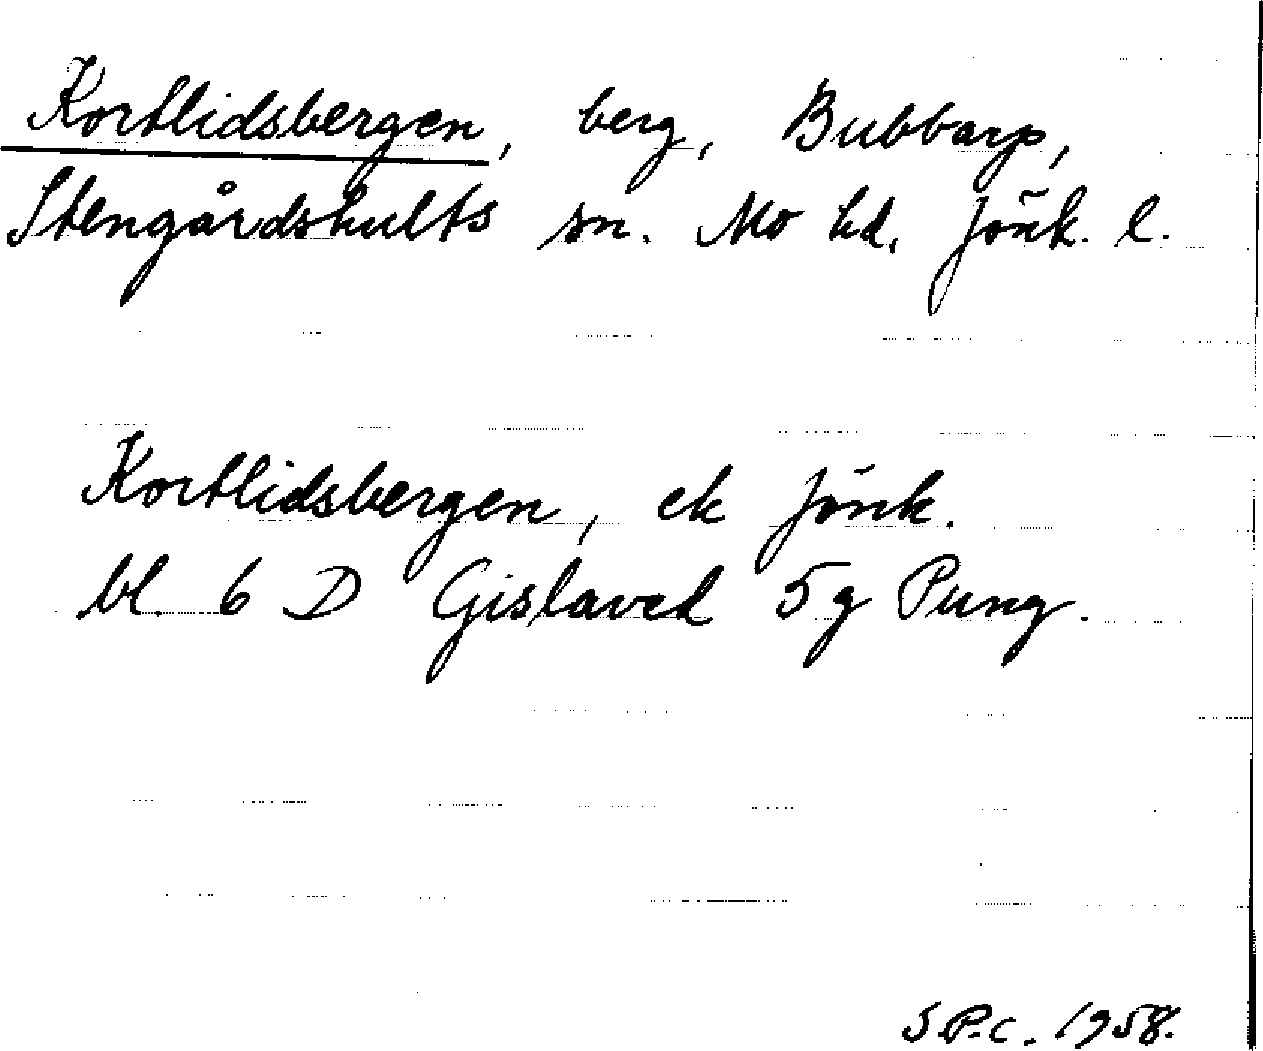 Kortlidsbergen, berg, Bubbarp,
Stengårdshults sn. Mo hd. Jönk. l.
Kortlidsbergen, ek Jönk.
bl. 6 D Gislaved 5g Pung.
S.P.C. 1958.